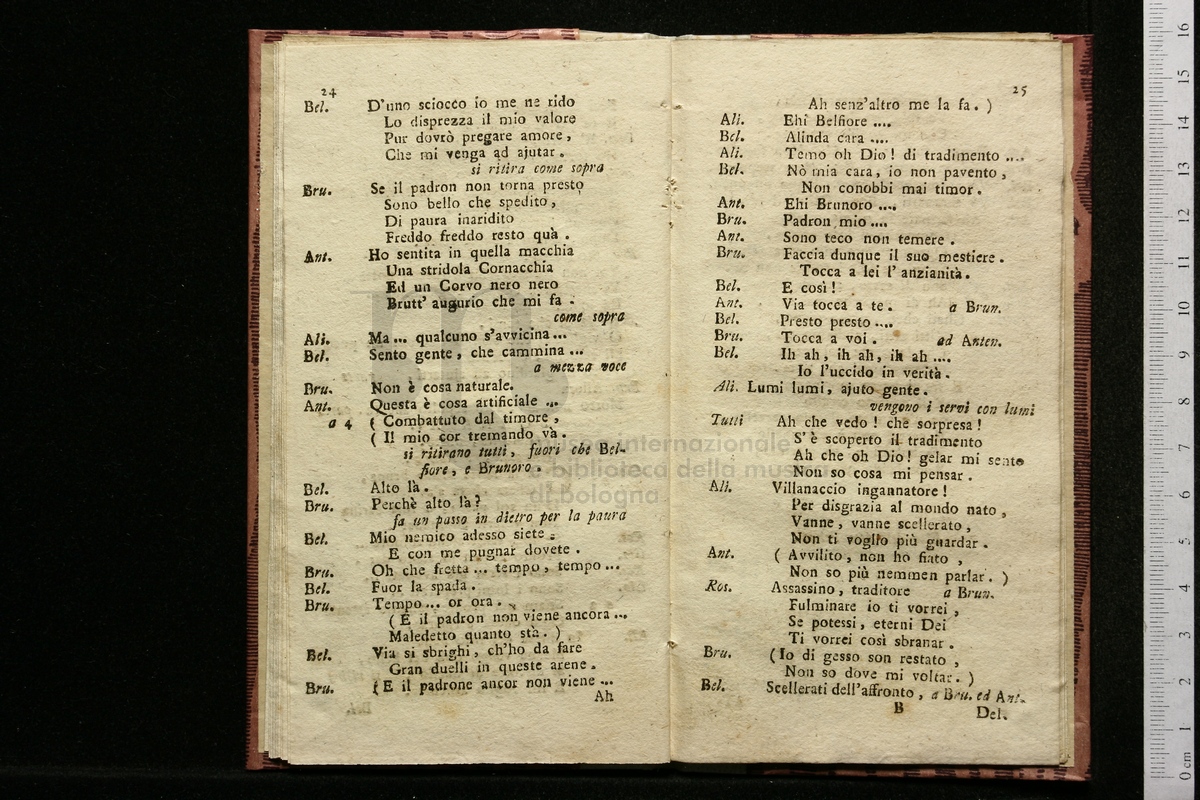 24
Bel. D'uno sciocco io me ne rido
Lo disprezza il mio valore
Pur dovrò pregare amore,
Che mi venga ad ajutar.
si ritira come sopra
Bru. Se il padron non torna presto
Sono bello che spedito,
Di paura inaridito
Freddo freddo resto quà.
Ant. Ho sentita in quella macchia
Una stridola Cornacchia
Ed un Corvo nero nero
Brutt' augurio che mi fa.
come sopra
Ali. Ma... qualcuno s'avvicina...
Bel. Sento gente, che cammina...
a mezza voce
Bru. Non è cosa naturale.
Ant. Questa è cosa artificiale...
a 4 ( Combattuto dal timore,
( Il mio cor tremando và.
si ritirano tutti, fuori che Bel-
fiore, e Brunoro.
Bel. Alto là.
Bru. Perchè alto là?
fa un passo in dietro per la paura
Bel. Mio nemico adesso siete:
E con me pugnar dovete.
Bru. Oh che fretta... tempo, tempo...
Bel. Fuor la spada.
Bru. Tempo... or ora.
( E il padron non viene ancora...
Maledetto quanto stà. )
Bel. Via si sbrighi, ch'ho da fare
Gran duelli in queste arene.
Bru. ( E il padrone ancor non viene...
Ah
25
Ah senz'altro me la fa. )
Ali. Ehi Belfiore....
Bel. Alinda cara....
Ali. Temo oh Dio! di tradimento....
Bel. Nò mia cara, io non pavento,
Non conobbi mai timor.
Ant. Ehi Brunoro....
Bru. Padron mio....
Ant. Sono teco non temere.
Bru. Faccia dunque il suo mestiere.
Tocca a lei l'anzianità.
Bel. E così!
Ant. Via tocca a te. a Brun.
Bel. Presto presto....
Bru. Tocca a voi. ad Anten.
Bel. Ih ah, ih ah, ih ah....
Io l'uccido in verità.
Ali. Lumi lumi, ajuto gente.
vengono i servi con lumi
Tutti Ah che vedo! che sorpresa!
S'è scoperto il tradimento
Ah che oh Dio! gelar mi sento
Non so cosa mi pensar.
Ali. Villanaccio ingannatore!
Per disgrazia al mondo nato,
Vanne, vanne scellerato,
Non ti voglio più guardar.
Ant. ( Avvilito, non ho fiato,
Non so più nemmen parlar. )
Ros. Assassino, traditore a Brun.
Fulminare io ti vorrei,
Se potessi, eterni Dei
Ti vorrei così sbranar.
Bru. (Io di gesso son restato,
Non so dove mi voltar. )
Bel. Scellerati dell'affronto, a Bru. ed Ant.
B
Del.
museo internazionale
e biblioteca della musica
di bologna
0 cm 1 2 3 4 5 6 7 8 9 10 11 12 13 14 15 16